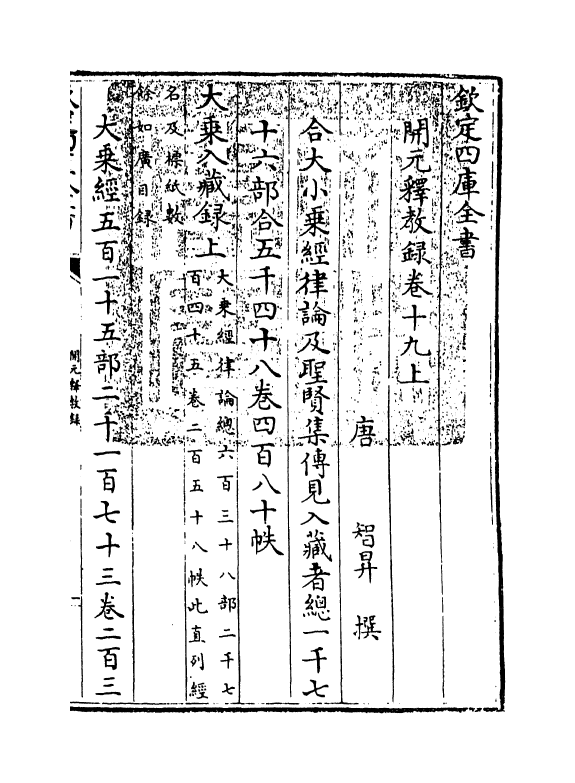 欽定四庫全書
開元釋教録卷十九上
唐 智昇 撰
合大小乘經律論及聖賢集傳見入藏者總一千七
十六部合五千四十八卷四百八十帙
大乘入藏録上
大乘經律論總六百三十八部二千七
百四十五卷二百五十八帙此直列經
名及標紙數
餘如廣目録
大乘經五百一十五部二千一百七十三卷二百三
開元釋教録